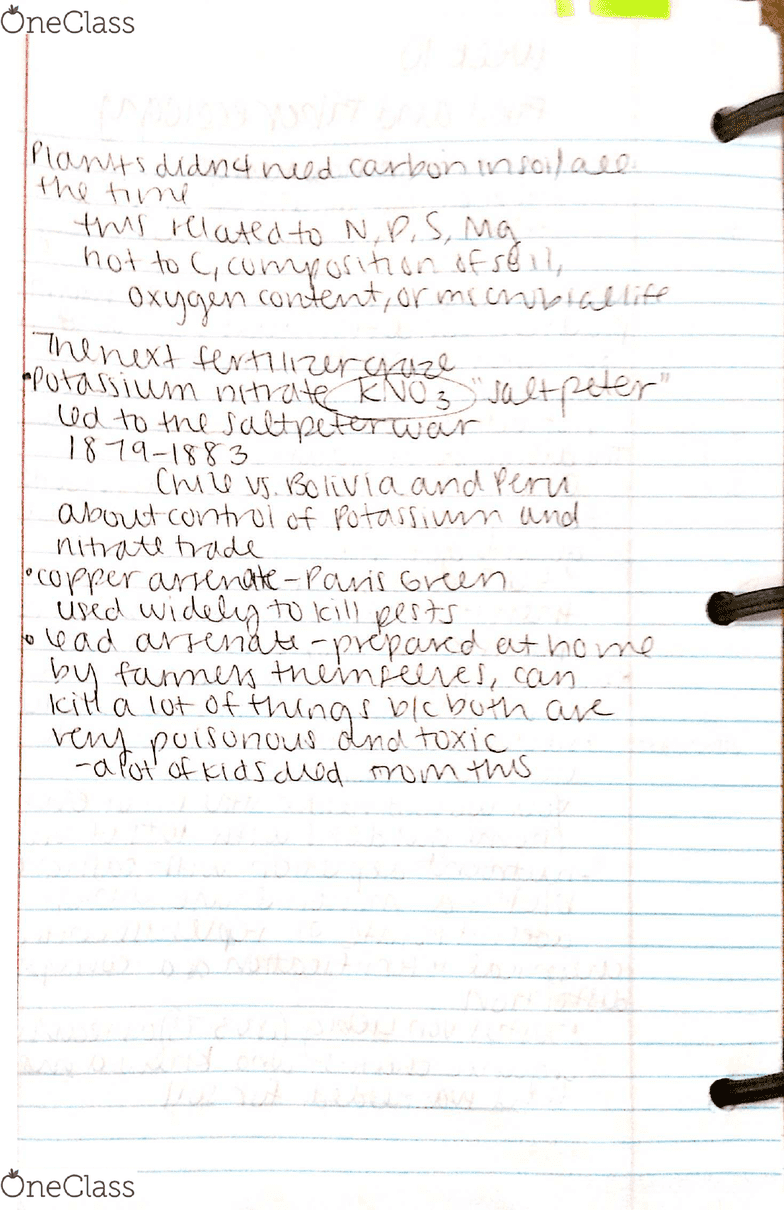 OneClass
Plants didn't need carbon in soil all
the time
this related to N, P, S, Mg
not to C, composition of soil,
oxygen content, or microbial life
The next fertilizer craze
•Potassium nitrate KNO3 "saltpeter"
led to the saltpeter war
1879-1883
Chile vs. Bolivia and Peru
about control of potassium and
nitrate trade
•copper arsenate - Paris Green
used widely to kill pests
• lead arsenate - prepared at home
by farmers themselves, can
kill a lot of things b/c both are
very poisonous and toxic
- a lot of kids died from this
OneClass